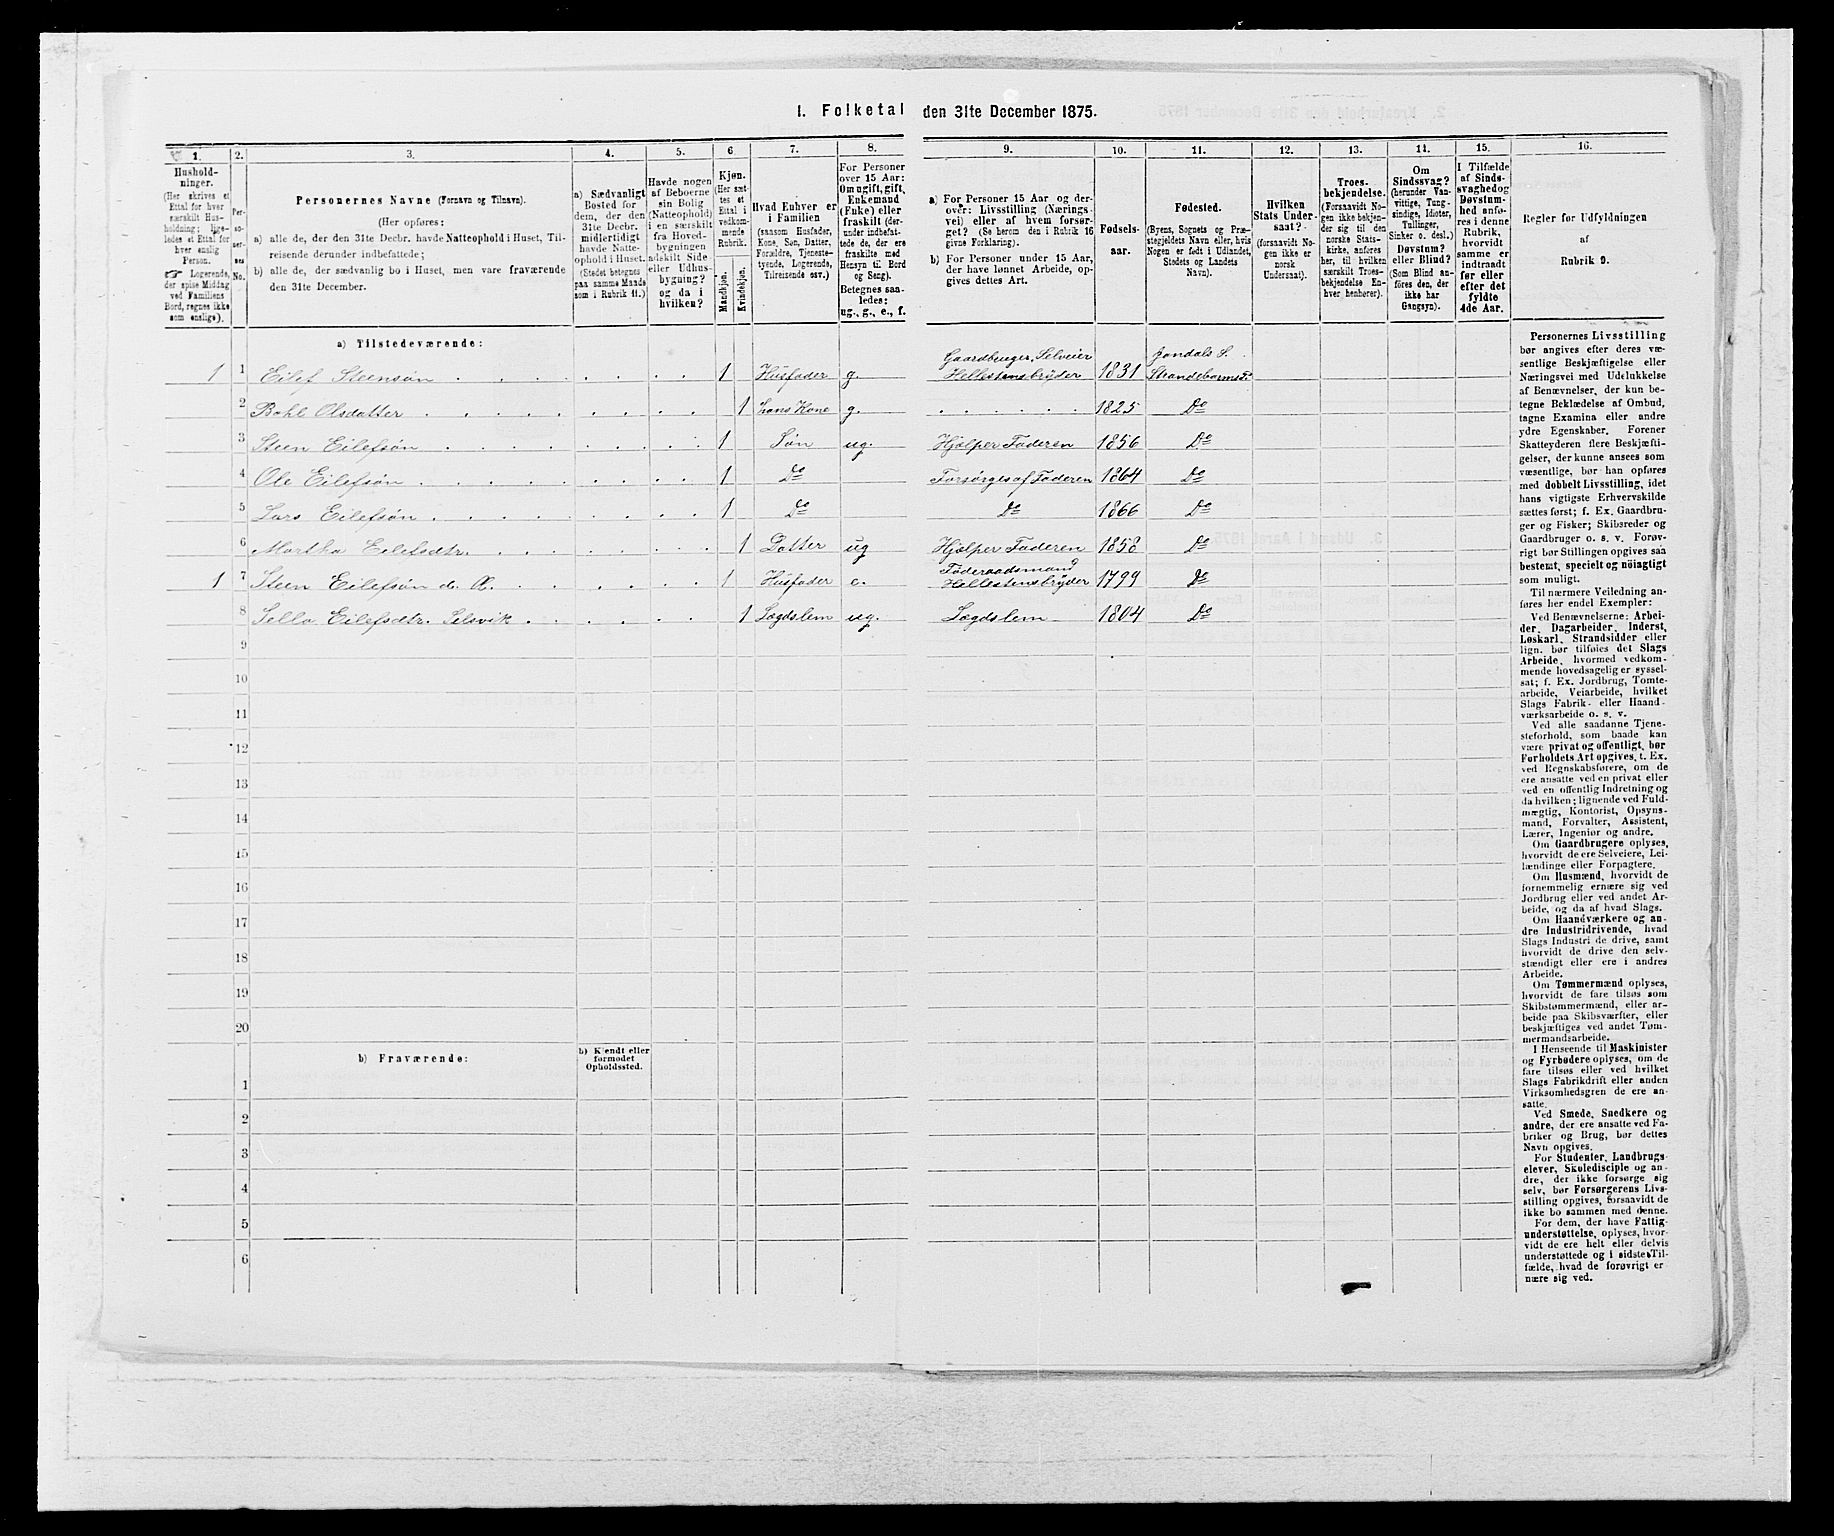 1. Folketal den 31te December 1875.
1.
2.
3.
4.
5.
6
7.
8.
9.
10.
11.
12.
13.
14.
15.
16.
Hushold-
ninger.
(Her skrives et
Ettal for hver
særskilt Hus-
holdning; lige-
ledes et Ettal for
hver enslig
Person.
☞ Logerende,
der spise Middag
ved Familiens
Bord, regnes ikke
som enslige).
Per-
so-
ner-
nes
No.
Personernes Navne (Fornavn og Tilnavn).
(Her opføres:
a) alle de, der den 31te Decbr. havde Natteophold i Huset, Til-
reisende derunder indbefattede;
b) alle de, der sædvanlig bo i Huset, men vare fraværende
den 31te December.
a) Sædvanligt
Bosted for
dem, der den
31te Decbr.
midlertidigt
havde Natte-
ophold i Huset.
(Stedet betegnes
paa samme Maade
som i Rubrik 11.)
Havde nogen
af Beboerne
sin Bolig
(Natteophold)
i en særskilt
fra Hoved-
bygningen
adskilt Side-
eller Udhus-
bygning?
og da i
hvilken?
Kjøn.
(Her sæt-
tes et
Ettal i
vedkom-
mende
Rubrik.
Mandkjøn.
Kvindekjøn.
Hvad Enhver er
i Familien
(saasom Husfader,
Kone, Søn, Datter,
Forældre, Tjeneste-
tyende, Logerende,
Tilreisende osv.)
For Personer
over 15 Aar:
Om ugift, gift,
Enkemand
(Enke) eller
fraskilt (der-
under indbefat-
tede de, der ere
fraskilte med
Hensyn til Bord
og Seng).
Betegnes saa-
ledes:
ug., g., e., f.
a) For Personer 15 Aar og der-
over: Livsstilling (Nærings-
vei) eller af hvem forsør-
get? (Se herom den i Rubrik 16
givne Forklaring).
b) For Personer under 15 Aar,
der have lønnet Arbeide, op-
gives dettes Art.
Fødsels-
aar.
Fødested.
(Byens, Sognets og Præ-
stegjeldets Navn eller, hvis
Nogen er født i Udlandet,
Stedets og Landets
Navn).
Hvilken
Stats Under-
saat?
(forsaavidt No-
gen ikke er
norsk
Undersaat).
Troes-
bekjendelse.
(Forsaavidt No-
gen ikke bekjen-
der sig til den
norske Stats-
kirke, anføres
her, til hvilken
særskilt Troes-
bekjendelse En-
hver henhører).
Om
Sindssvag?
(herunder Van-
vittige, Tung-
sindige, Idioter,
Tullinger,
Sinker o. desl.)
Døvstum?
eller Blind?
(Som Blind an-
føres den, der
ikke har
Gangsyn).
I Tilfælde
af Sinds-
svaghed og
Døvstum-
hed anfø-
res i denne
Rubrik,
hvorvidt
samme er
indtraadt
før eller
efter det
fyldte
4de Aar.
Regler for Udfyldningen
af
Rubrik 9.
a) Tilstedeværende:
1 1 Eilef Steensøn 1 Husfader g. Gaardbruger, Selveier Hellestensbryder 1831 Jondals S. Strandebarms P.
2 Olsdatter 1 hans Kone g. 1825 Do
3 Steen Eilefsøn 1 Søn ug. Hjælper Faderen 1856 Do
4 Ole Eilefsøn 1 Do Forsørges af Faderen 1864 Do
5 Lars Eilefsøn 1 Do Do 1866 Do
6 Martha Eilefsdtr. 1 Datter ug Hjælper Faderen 1858 Do
1 7 Steen Eilefsøn d. Æ. 1 Husfader e. Føderaadsmand Hellestensbryder 1799 Do
8 Eilefsdtr. Selsvik 1 Lægdslem ug. Lægdslem 1804 Do
9
10
11
12
13
14
15
16
17
18
19
20
b) Fraværende:
b) Kjendt eller
formodet
Opholdssted.
1
2
3
4
5
6
Personernes Livsstilling
bør angives efter deres væ-
sentlige Beskjæftigelse eller
Næringsvei med Udelukkelse
af Benævnelser, der kun be-
tegne Beklædelse af Ombud,
tagne Examina eller andre
ydre Egenskaber. Forener
Skatteyderen flere Beskjæfti-
gelser, der kunne ansees som
væsentlige, bør han opføres
med dobbelt Livsstilling, idet
hans vigtigste Erhvervskilde
sættes først; f. Ex. Gaardbru-
ger og Fisker; Skibsreder og
Gaardbruger o. s. v. Forøv-
rigt bør Stillingen opgives saa
bestemt, specielt og nøiagtigt
som muligt.
Til nærmere Veiledning an-
føres her endel Exempler:
Ved Benævnelserne: Arbei-
der, Dagarbeider, Inderst,
Løskarl, Strandsidder eller
lign. bør tilføies det Slags
Arbeide, hvormed vedkom-
mende hovedsagelig er syssel-
sat; f. Ex. Jordbrug, Tomte-
arbeide, Veiarbeide, hvilket
Slags Fabrik- eller Haand-
værksarbeide o. s. v.
Ved alle saadanne Tjene-
steforhold, som baade kan
være privat og offentligt, bør
Forholdets Art opgives, t. Ex.
ved Regnskabsførere, om de
ere ansatte ved en privat eller
ved en offentlig Indretning og
da hvilken; lignende ved Fuld-
mægtig, Kontorist, Opsyns-
mand, Forvalter, Assistent,
Lærer, Ingeniør og andre.
Om Gaardbrugere oplyses,
hvorvidt de ere Selveiere, Lei-
lændinge eller Forpagtere.
Om Husmænd, hvorvidt de
fornemmelig ernære sig ved
Jordbrug eller ved andet Ar-
beide, og da af hvad Slags.
Om Haandværkere og an-
dre Industridrivende, hvad
Slags Industri de drive, samt
hvorvidt de drive den selv-
stændigt eller ere i andres
Arbeide.
Om Tømmermænd oplyses,
hvorvidt de fare tilsøs som
Skibstømmermænd, eller ar-
beide paa Skibsværfter, eller
beskjæftiges ved andet Tøm-
mermandsarbeide.
I Henseende til Maskinister
og Fyrbødere oplyses, om de
fare tilsøs eller ved hvilket
Slags Fabrikdrift eller anden
Virksomhedsgren de ere an-
satte.
Ved Smede, Snedkere og
andre, der ere ansatte ved Fa-
briker og Brug, bør dettes
Navn opgives.
For Studenter, Landbrugs-
elever, Skoledisciple og an-
dre, der ikke forsørge sig
selv, bør Forsørgerens Livs-
stilling opgives, forsaavidt de
ikke bo sammen med denne.
For dem, der have Fattig-
understøttelse, oplyses, hvor-
vidt de ere helt eller delvis
understøttede og i sidste Til-
fælde, hvad de forøvrigt er-
nære sig ved.